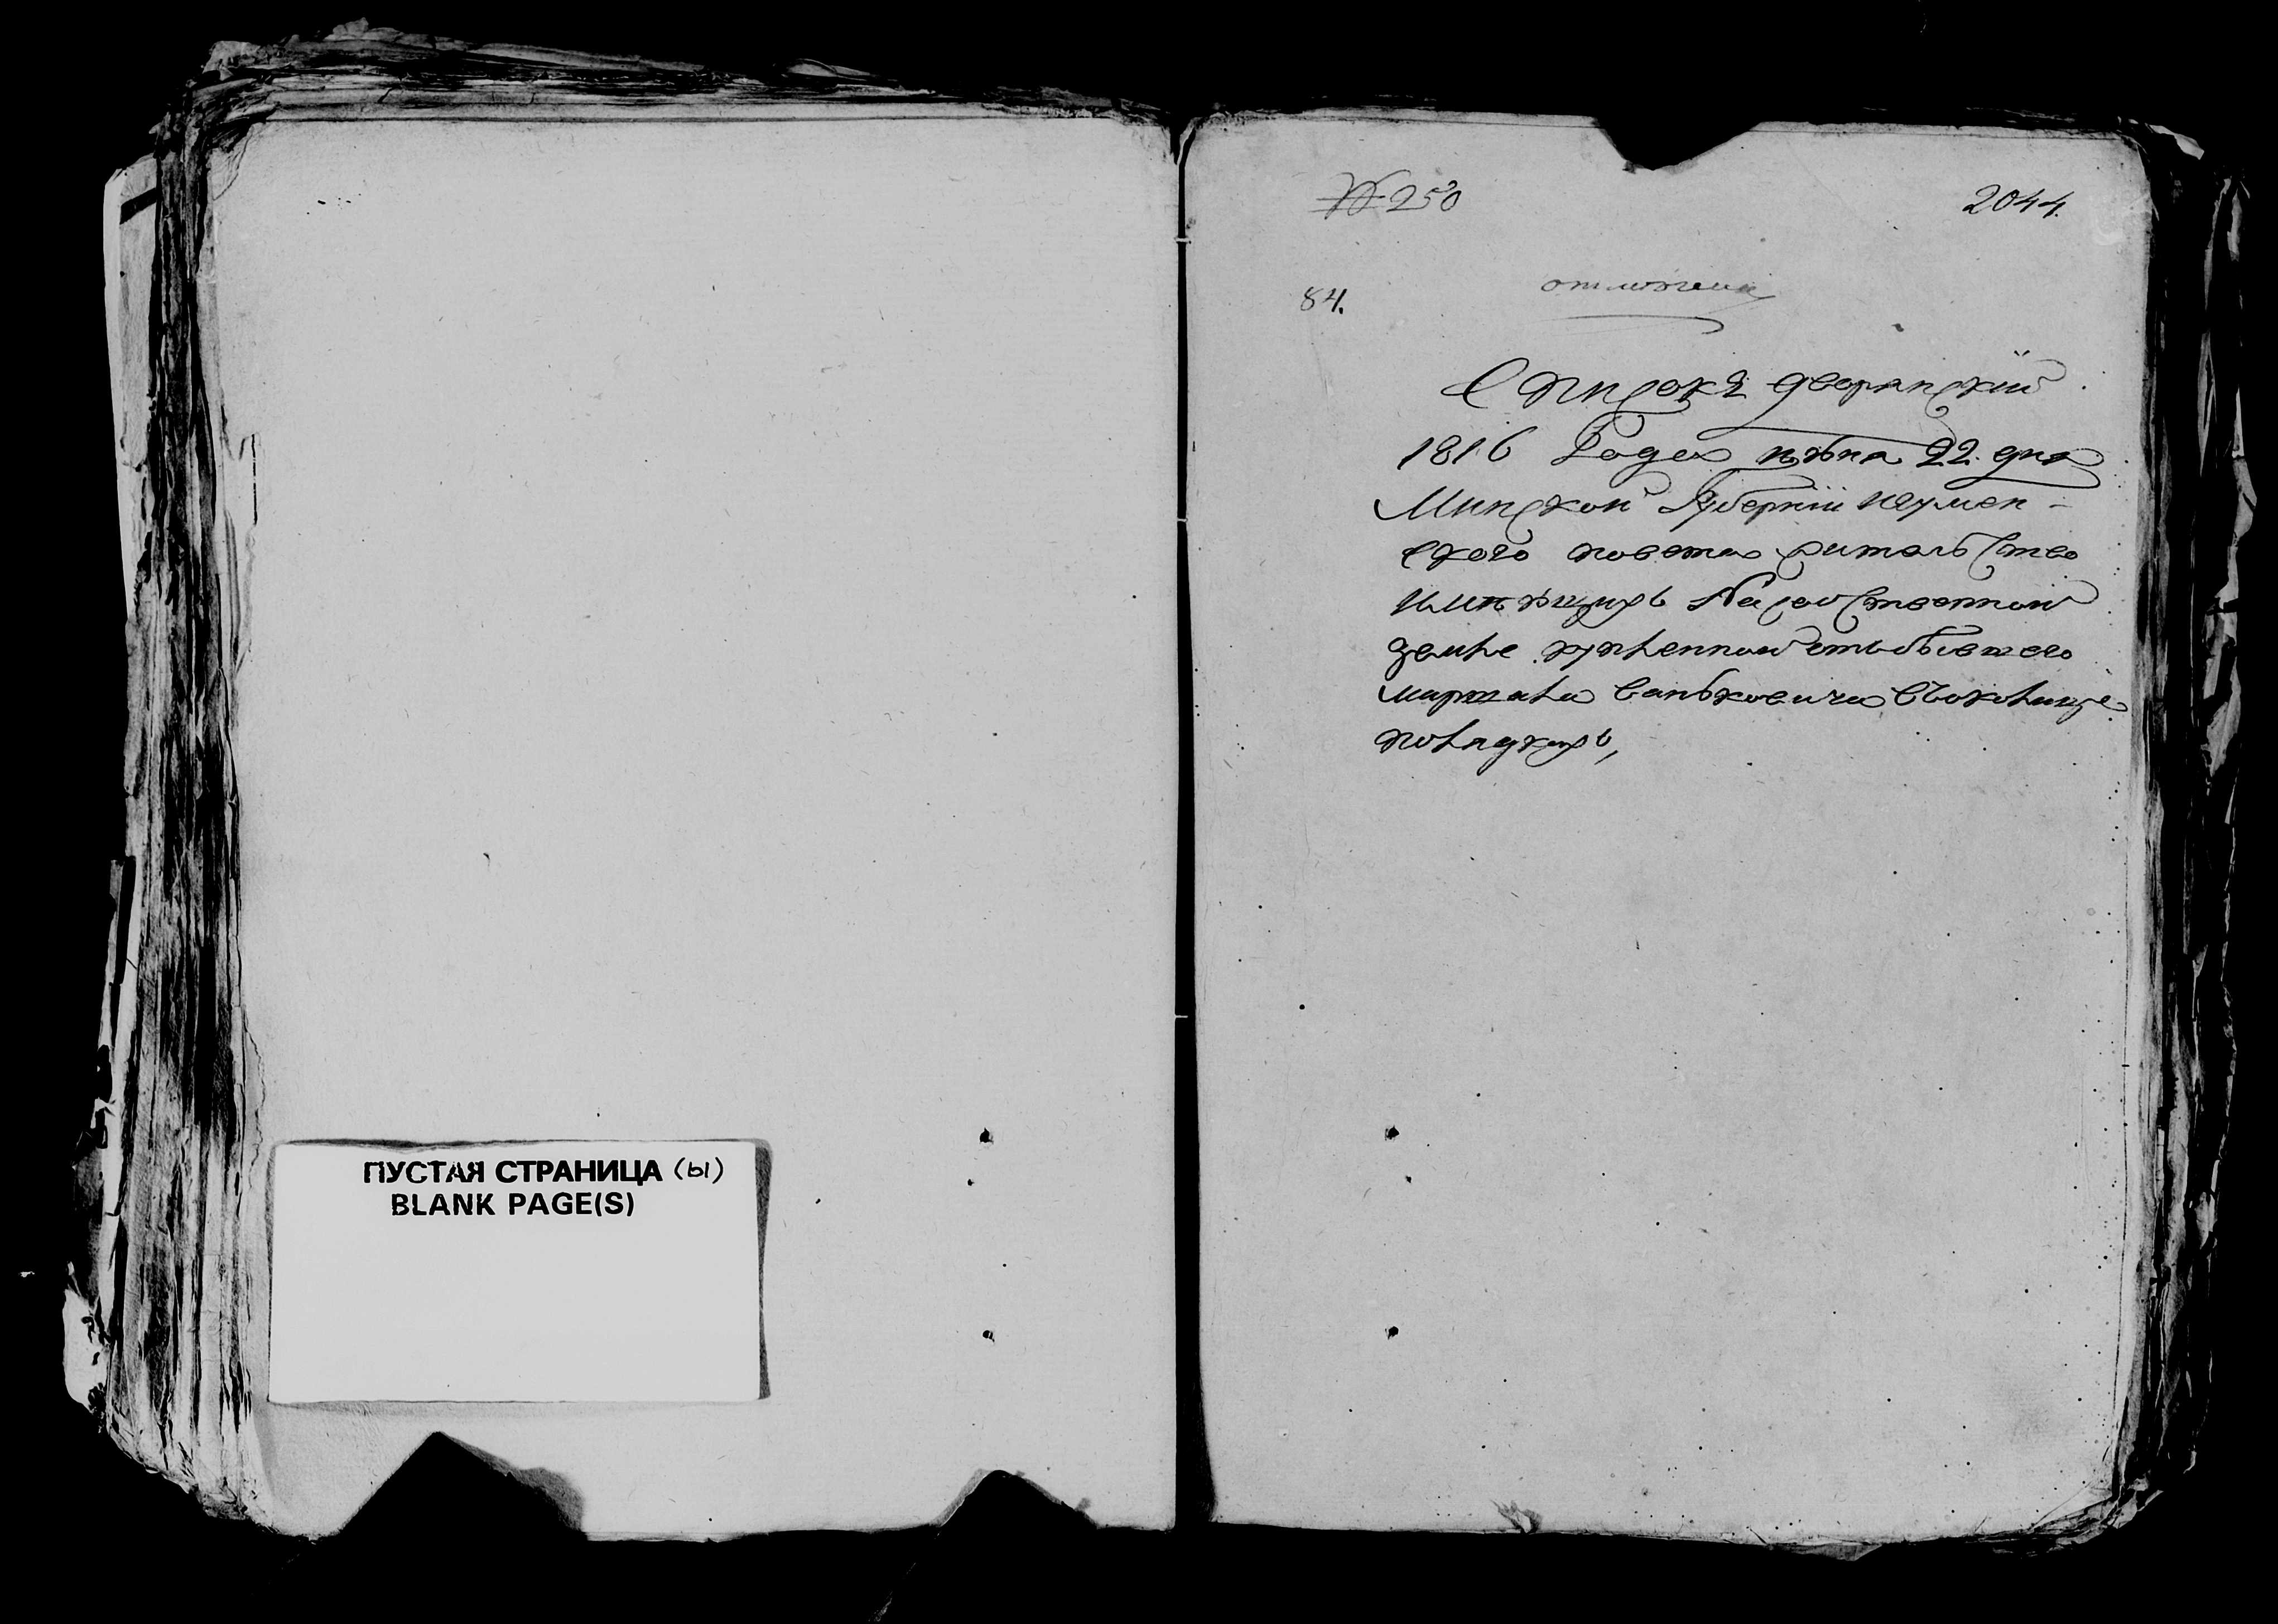 ПУСТАЯ СТРАНИЦА (ы)
BLANK PAGE(S)
№ 250
2044.
84.
Списокъ дворянскій
1816 Года 22. дня
Минской Губерніи Игумен-
ского повета жительство
имеющихъ На собственной
земле купленной отъ бывшего
маршала Ваньковича